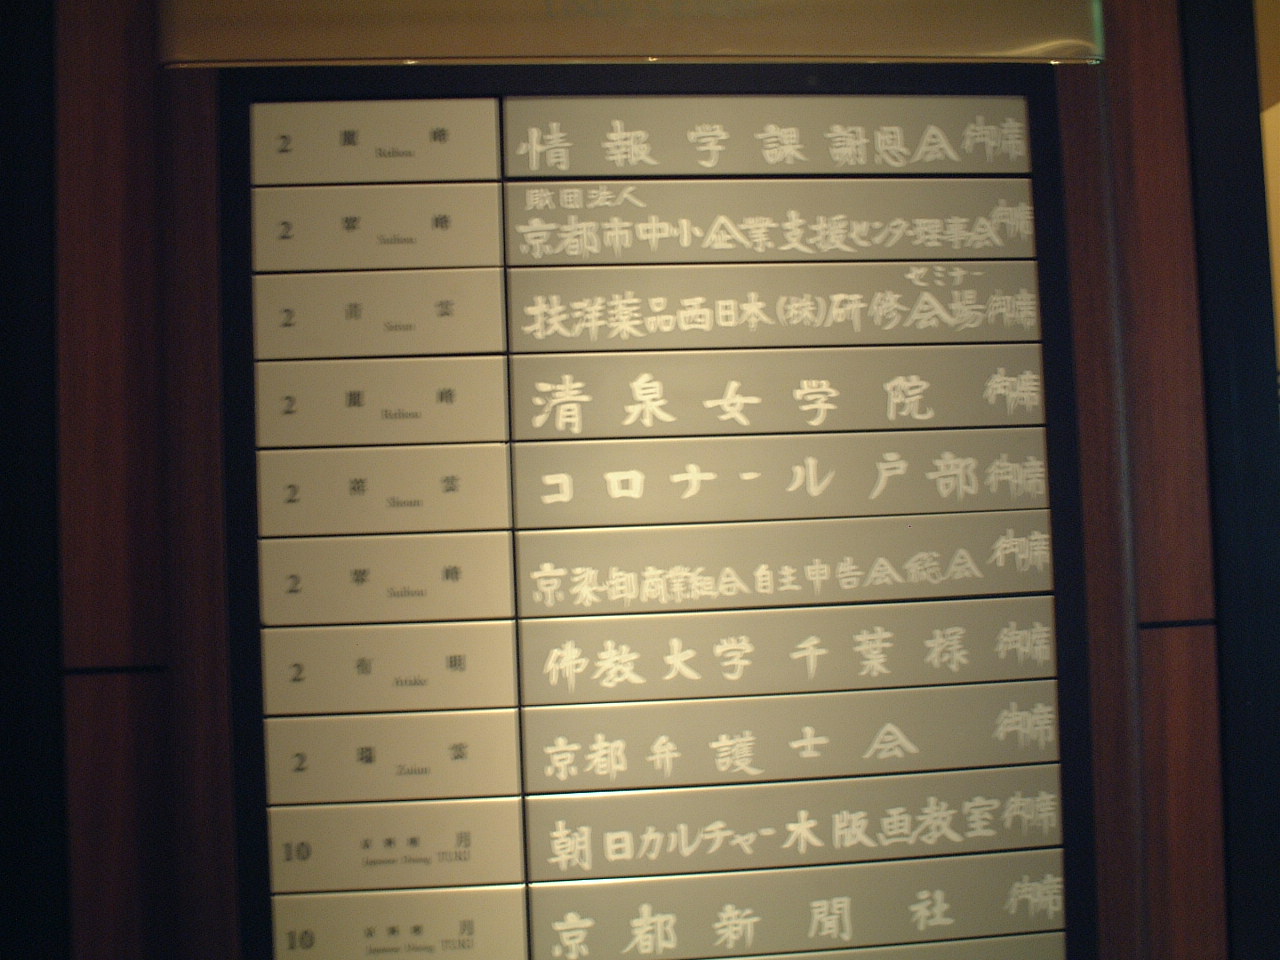 2 嵐峰 Ranhou 情報学課謝恩会御席
財団法人
2 翠峰 Suihou 京都市中小企業支援センター理事会御席
セミナー
2 青雲 Seiun 扶洋薬品西日本(株)研修会場御席
2 嵐峰 清泉女学院御席
2 祥雲 Shoun コロナール戸部御席
2 翠峰 Suihou 京染卸商業組合自主申告会総会御席
2 有明 Ariake 佛教大学千葉様御席
2 瑞雲 Zuiun 京都弁護士会御席
10 月 Japanese Dining 朝日カルチャー木版画教室御席
10 月 Japanese Dining 京都新聞社御席